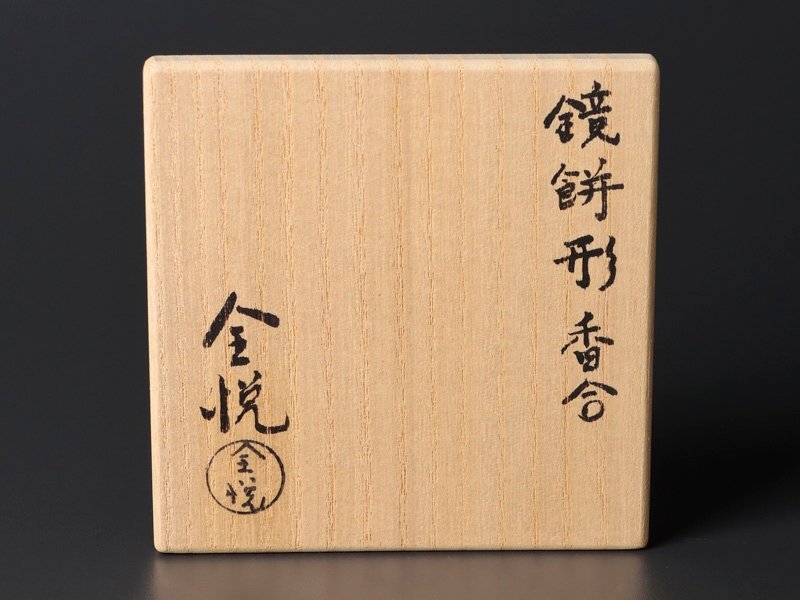 鏡餅形香合
全悦
全悦